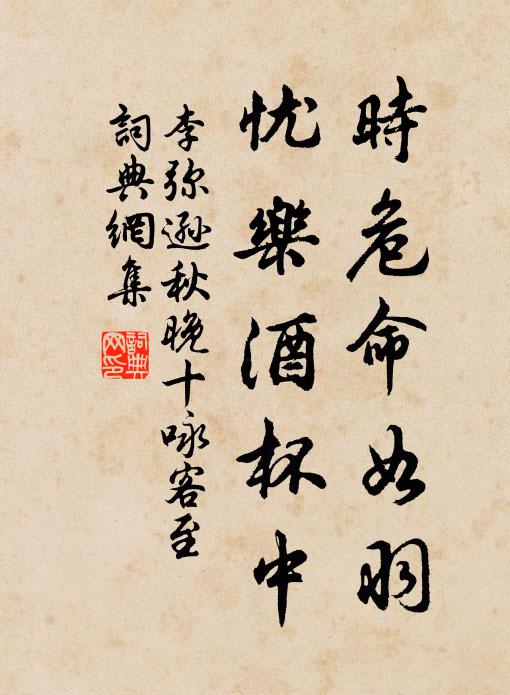 時危命如羽
忧樂酒杯中
李弥遜秋晚十咏客至
詞典網集
詞典网印